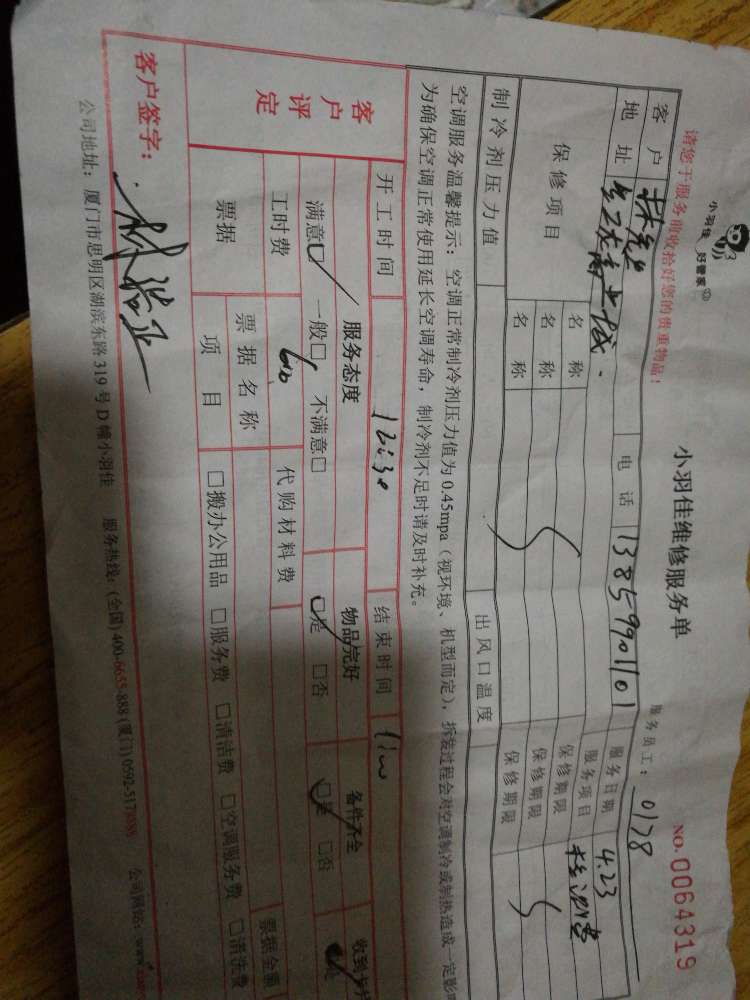 小羽佳
好管家
小羽佳维修服务单
NO.0064319
请您于服务前收拾好您的贵重物品!
服务员工: 0128
客户
电话 13859901101
服务日期 4.23
地址
服务项目
保修项目
名称
保修期限
名称
保修期限
名称
保修期限
制冷剂压力值
出风口温度
空调服务温馨提示:空调正常制冷剂压力值为0.45mpa(视环境、机型而定),拆装过程会对空调制冷或制热造成一定影
为确保空调正常使用延长空调寿命,制冷剂不足时请及时补充。
开工时间 12:30
结束时间
客户评定
服务态度
物品完好
备件齐全
满意☑ 一般□ 不满意□
☑是 □否
☑是 □否
工时费 60
代购材料费
票据
票据名称
票据金额
项目
□搬办公用品 □服务费 □清洁费 □空调服务费 □清洗费
客户签字:
公司地址:厦门市思明区湖滨东路319号D幢小羽佳 服务热线:(全国)400-6655-888(厦门)0592-5178888 公司网站:www.